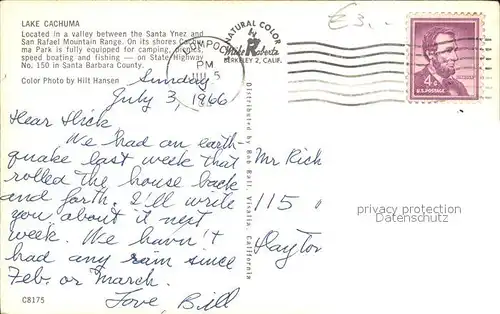 LAKE CACHUMA
Located in a valley between the Santa Ynez and
San Rafael Mountain Range. On its shores
ma Park is fully equipped for camping, picnics,
speed boating and fishing — on State Highway
No. 150 in Santa Barbara County.
Color Photo by Hilt Hansen
PM
NATURAL COLOR
Mike Roberts
BERKELEY 2, CALIF.
E3.-
4¢
U.S. POSTAGE
Sunday
July 3, 1966
Dear Dick
We had an earth-
quake last week that
rolled the house back
and forth. I'll write
you about it next
week. We havn't
had any rain since
Feb. or March.
Love, Bill
C8175
Distributed by Bob Bait, Visalia, California
Mr Rich
115
Dayton
privacy protection